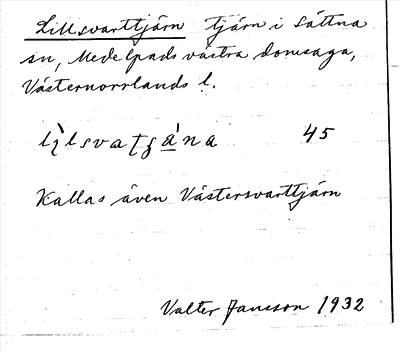 Lillsvarttjärn tjärn i Sättna
sn, Medelpads västra domsaga,
Västernorrlands l.
45
Kallas även Västersvarttjärn
Valter Jansson 1932